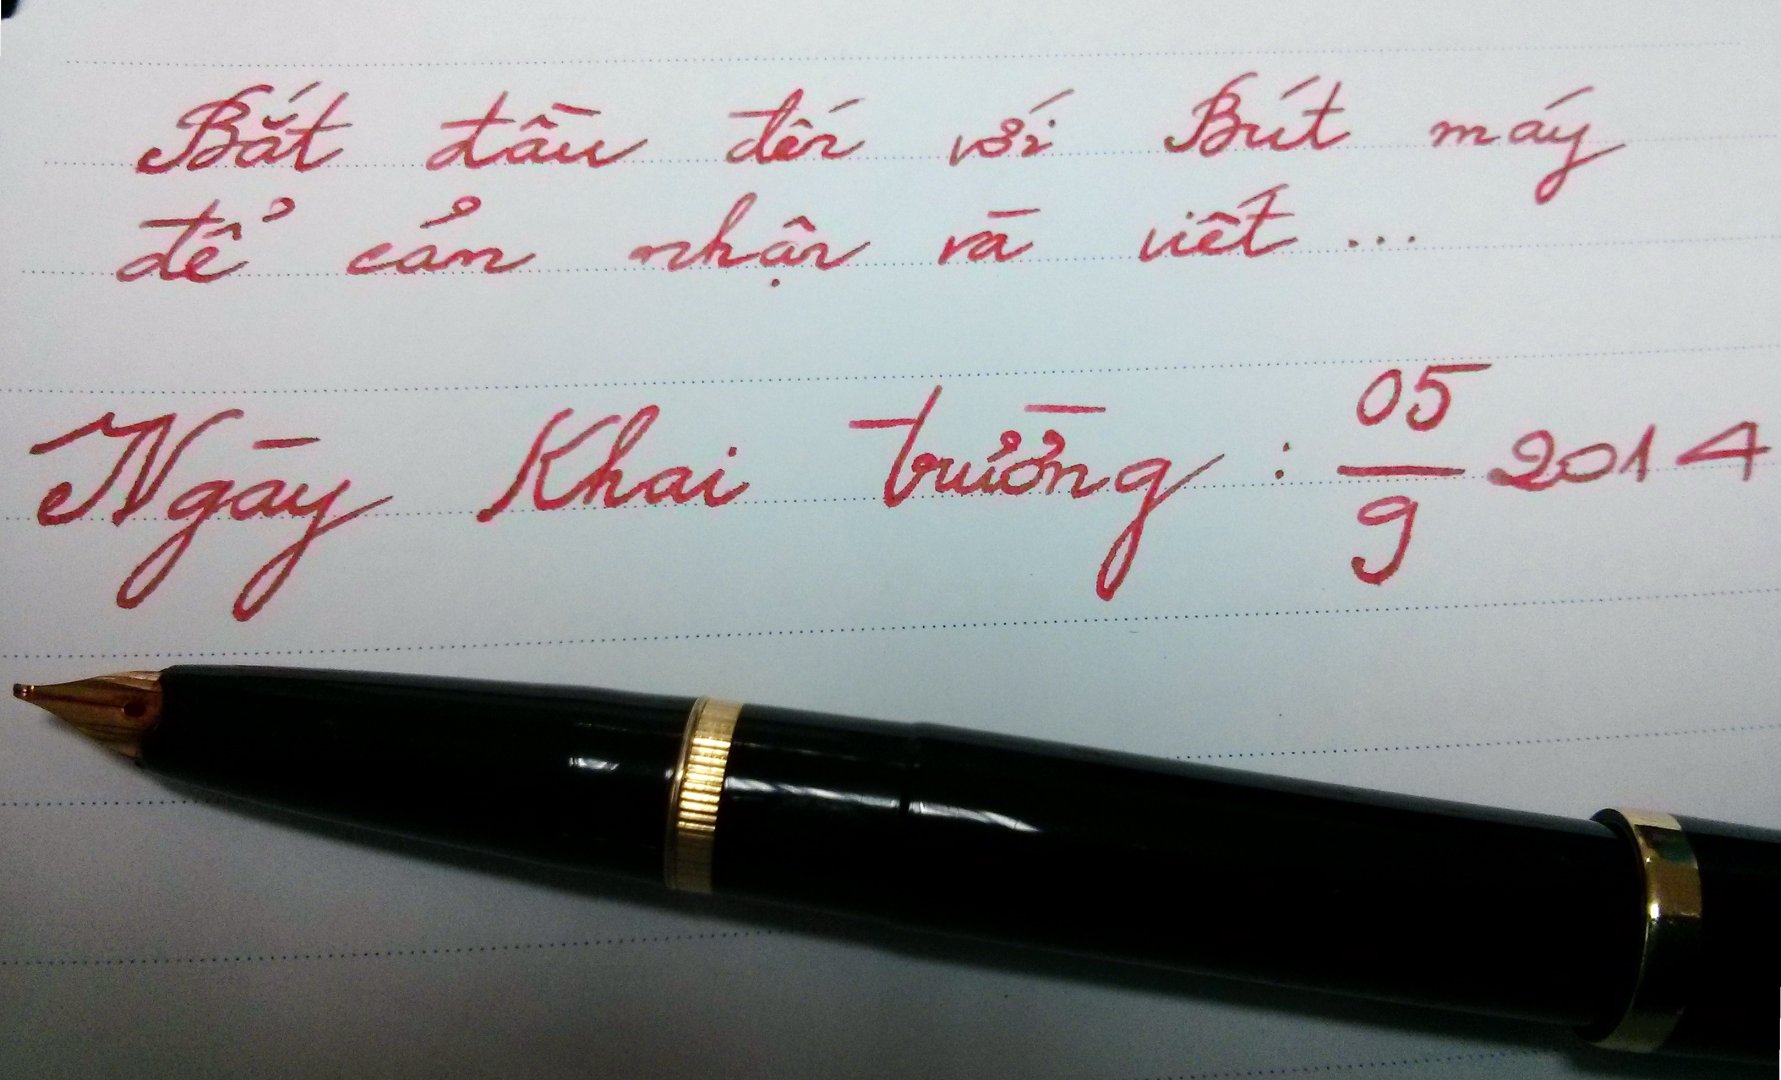 Bắt đầu đến với Bút máy
để cản nhận và viết...
Ngày Khai trường : 05/9 2014